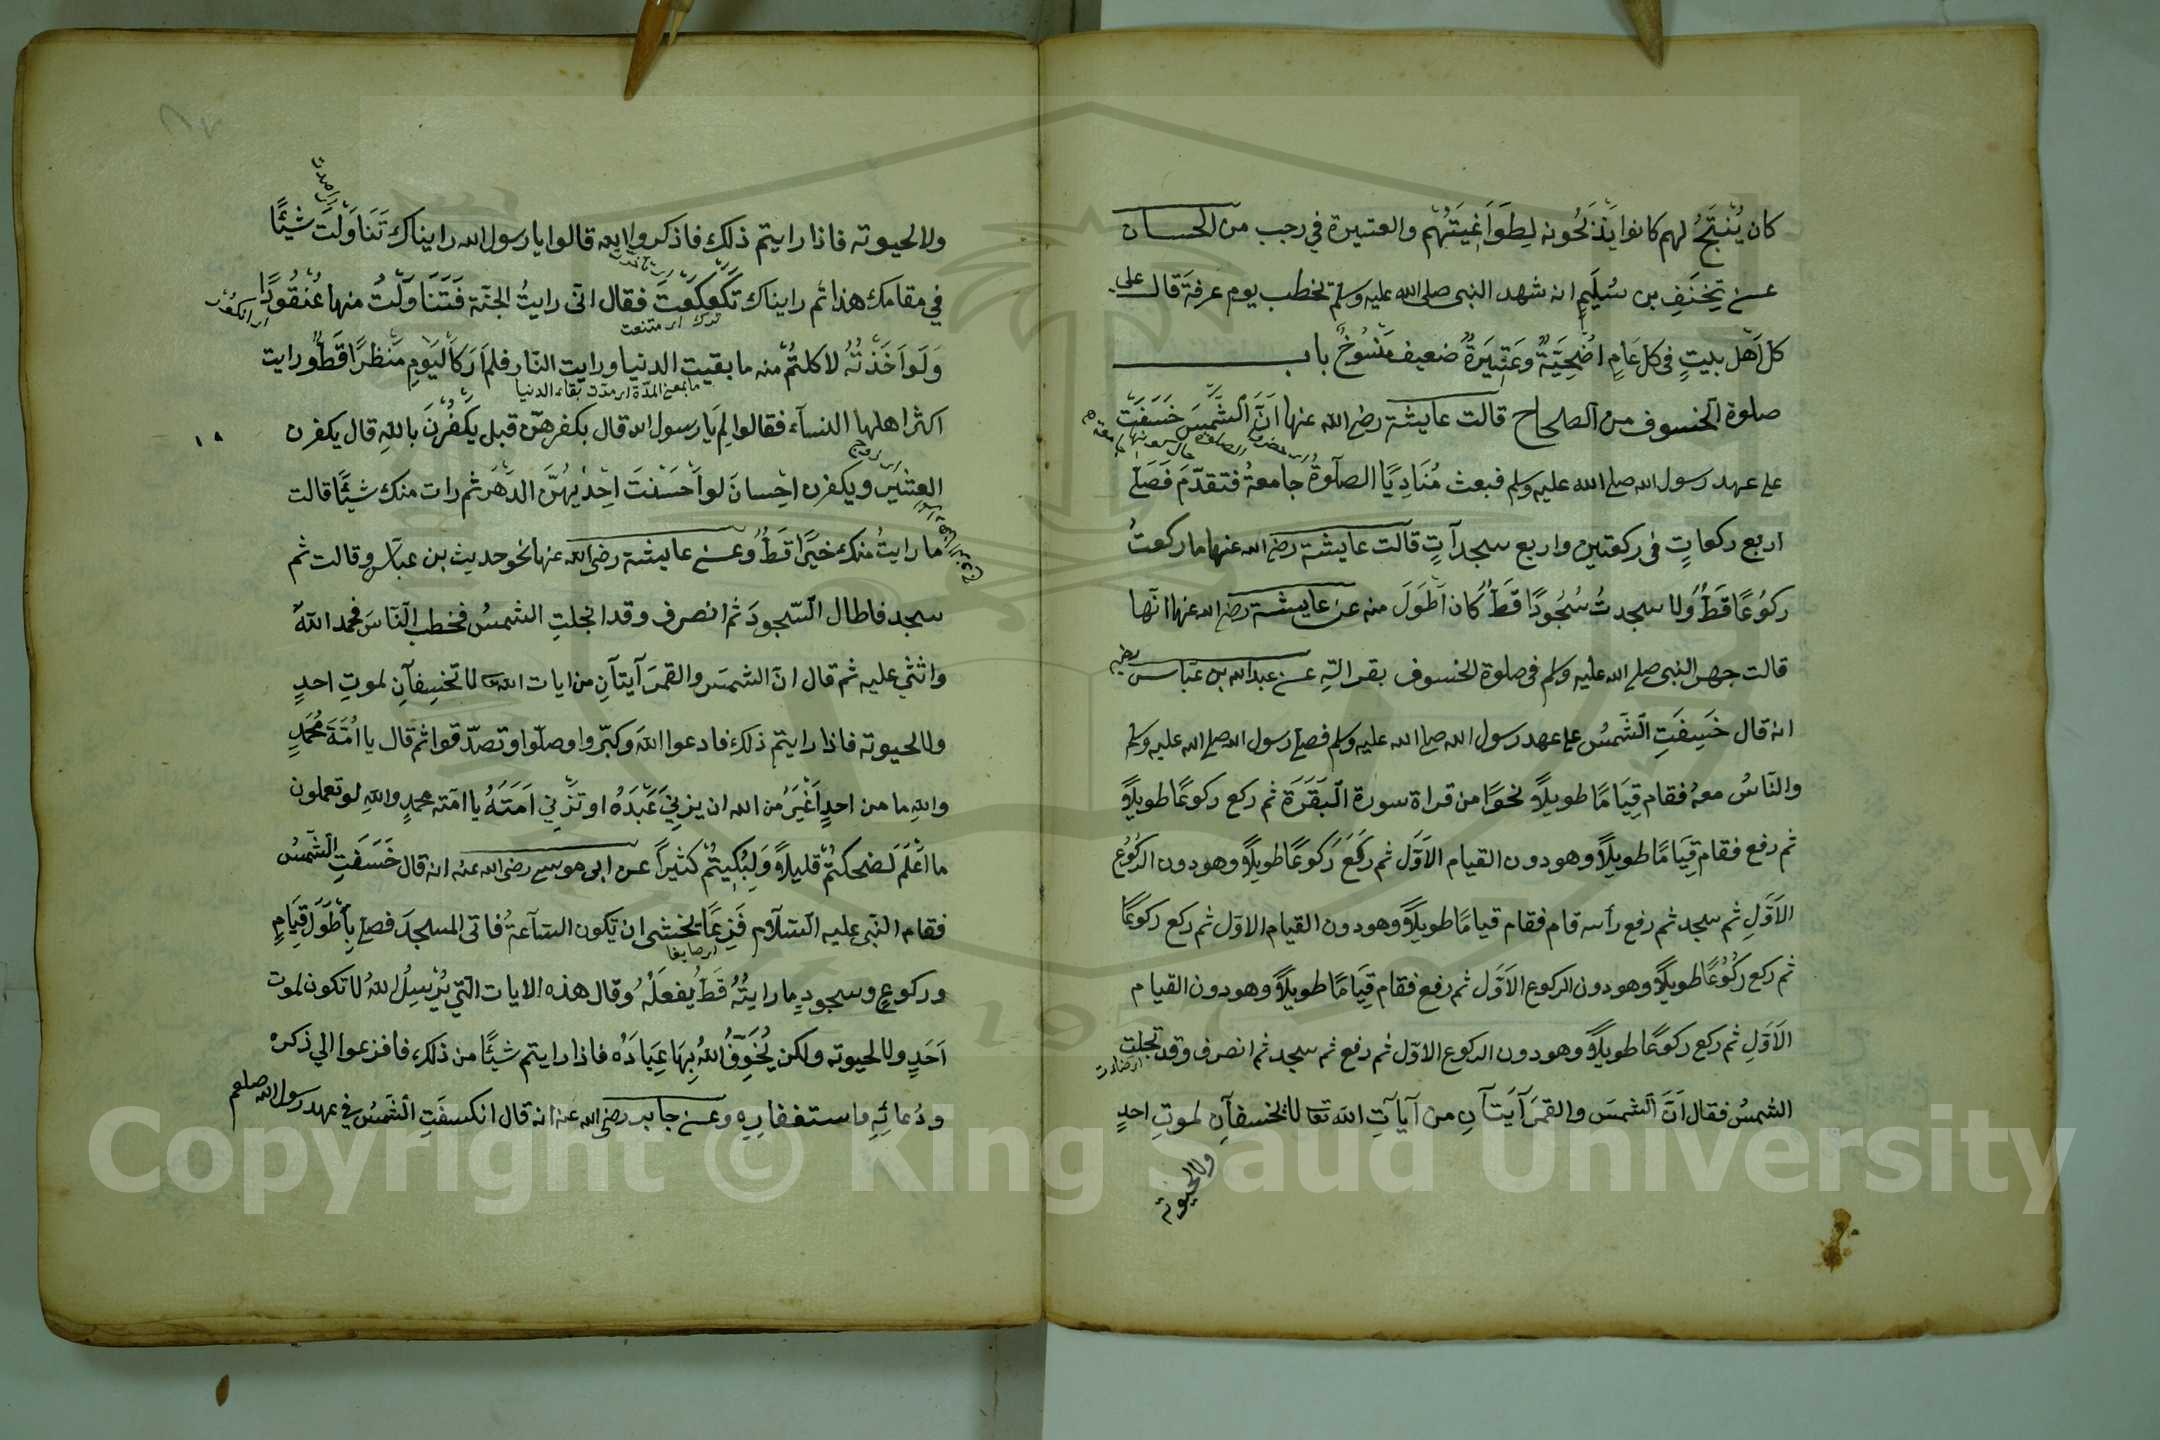 كان يُنْتَجُ لهم كانوا يَذْبَحُونه لِطَوَاغِيَتِهُم والعتيرة في رجب من الحسان
عن مِخْنَفِ بن سُلَيمٍ انه شهد النبى صلى الله عليه وسلم يخطب يوم عرفة قال على
كل اَهْل بيتٍ فى كل عَامٍ اُضْحِيَةٌ وَعَتِيَرةٌ ضعيف مَنْسُوخٌ باب
صلوة الخسوف من الصحاح قالت عايشة رضى الله عنها اَنَّ الشَّمْسَ خَسَفَتْ
على عهد رسول الله صلى الله عليه وسلم فبعث مُنَادِيًا الصلوة جامعةٌ فتقدّمَ فَصَلّى
اربع ركعاتٍ فى ركعتين واربع سجداتٍ قالت عايشة رضى الله عنها ما ركعتُ
ركُوعًا قَطُّ ولا سجدتُ سُجُودًا قَطُّ كان اَطْوَلَ منه عن عايشة رضى الله عنها انّها
قالت جهر النبى صلى الله عليه وسلم فى صلوة الخسوف بقراتِهِ عن عبد الله بن عباس رضه
انه قال خَسِفَتِ الشَّمْسُ على عهد رسول الله صلى الله عليه وسلم فصلى رسول الله صلى الله عليه وسلم
والنّاسُ معهُ فقام قِيَامًا طويلاً نحوًا من قراة سورة البَقَرَة ثم ركع ركوعًا طويلاً
ثم رفع فقام قِيَامًا طويلاً وهو دون القيام الاَوّل ثم رَكَعَ رُكوعًا طويلاً وهو دون الركُوع
الاَوَّلِ ثم سجد ثم رفع رأسه قام فقام قيامًا طويلاً وهو دون القيام الاوّل ثم ركع ركوعًا
ثم ركع رُكُوعًا طويلاً وهو دون الركوع الاَوّل ثم رفع فقام قِيَامًا طويلاً وهو دون القيام
الاَوّلِ ثم ركع ركوعًا طويلاً وهو دون الركوع الاوّل ثم رفع ثم سجد ثم انصرف وقد تجلت
الشمسُ فقال اَنَّ الشمسَ والقمرَ آيَتَانِ من آياتِ الله تعا لا يخسفانِ لموتِ احدٍ
ولا لحيوته
ولا لحيوته فاذا رايتم ذلك فاذكروا الله قالوا يا رسول الله رايناك تَنَاوَلْتَ شيْئًا
في مقامك هذا ثم رايناك تَكَعْكَعْتَ فقال انّى رايتُ الجنّة فَتَنَاوَلْتُ منها عُنْقُودًا
وَلَو اَخَذْتُهُ لاكلتُمْ منه ما بقيت الدنيا ورايت النّار فلم اَرَ كَاَليَومِ مَنْظرًا قَطُّ ورايت
ما بمعنى المدّة اى مدّت بقاء الدنيا
اكثر اهلها النساء فقالوا لِمَ يا رسول الله قال بكفرهنّ قيل يَكْفُرْنَ باللهِ قال يكفرن
العشير ويكفرن احِسانَ لو اَحْسَنْتَ اِحْديهُنَّ الدَهْرَ ثم رات منك شيئًا قالت
ما رايتُ منك خيرًا قَطُّ وعن عايشة رضى الله عنها نحو حديث بن عباس وقالت ثم
سجد فاطال السّجودَ ثم انصرف وقد انجلتِ الشمسُ فخطب النّاسَ فحمد اللهَ
واثنى عليه ثم قال انّ الشمسَ والقمرَ آيتانِ من ايات الله لا تخسِفانِ لموتِ احدٍ
ولا لحيوته فاذا رايتم ذلك فادعوا اللهَ وكبّروا وصلّوا وتصدّقوا ثم قال يا اُمَّةَ مُحَمَدٍ
واللهِ ما من احدٍ اَغْيَرُ من الله ان يزنِيَ عَبْدَهُ او تَزْنِي اَمَتَهُ يا امّة محمدٍ واللهِ لو تعلمون
ما اَعْلَمُ لَضحكتُمْ قليلاً وَلَبَكِيتُمْ كثيراً عن ابى موسى رضى الله عنه انه قال خَسَفَتِ الشّمسُ
فقام النّبى عليه السّلام فَزِعًا يخشى ان يكون السّاعةُ فاتى المسجدَ فصلى بِاَطْوَلِ قِيَامٍ
وركوعٍ وسجودٍ ما رايتُهُ قَطُّ يفعلُهُ وقال هذه الايات الّتى يُرْسِلُ اللهُ لا تكون لموت
اَحَدٍ ولا لحيوته ولكن يُخَوِّفُ اللهُ بِهَا عِبَادَهُ فاذا رايتم شيئًا من ذلك فافزعوا الى ذكره
ودُعائِهِ واستغفاره وعن جابر رضى الله عنه انه قال انكسفَتِ الشّمسُ في عهد رسول الله صلعم
Copyright © King Saud University